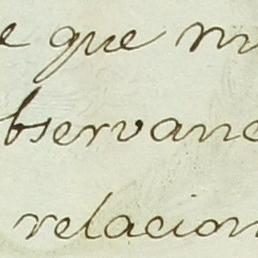 e que nu
bservanc
relacion